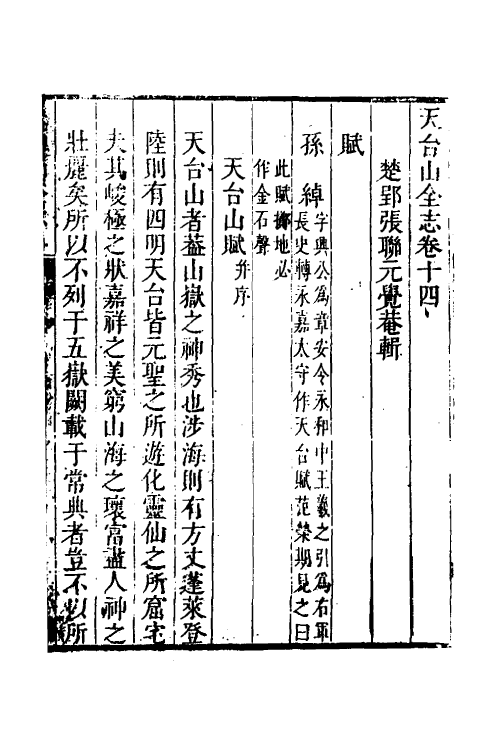 天台山全志卷十四
楚郢張聯元覺菴輯
賦
孫綽字興公為章安令永和中王羲之引為右軍
長史轉永嘉太守作天台賦范榮期見之曰
此賦擲地必
作金石聲
天台山賦并序
天台山者葢山嶽之神秀也涉海則有方丈蓬萊登
陸則有四明天台皆元聖之所遊化靈仙之所窟宅
夫其峻極之狀嘉祥之美窮山海之瓌富盡人神之
壯麗矣所以不列于五嶽闕載于常典者豈不以所